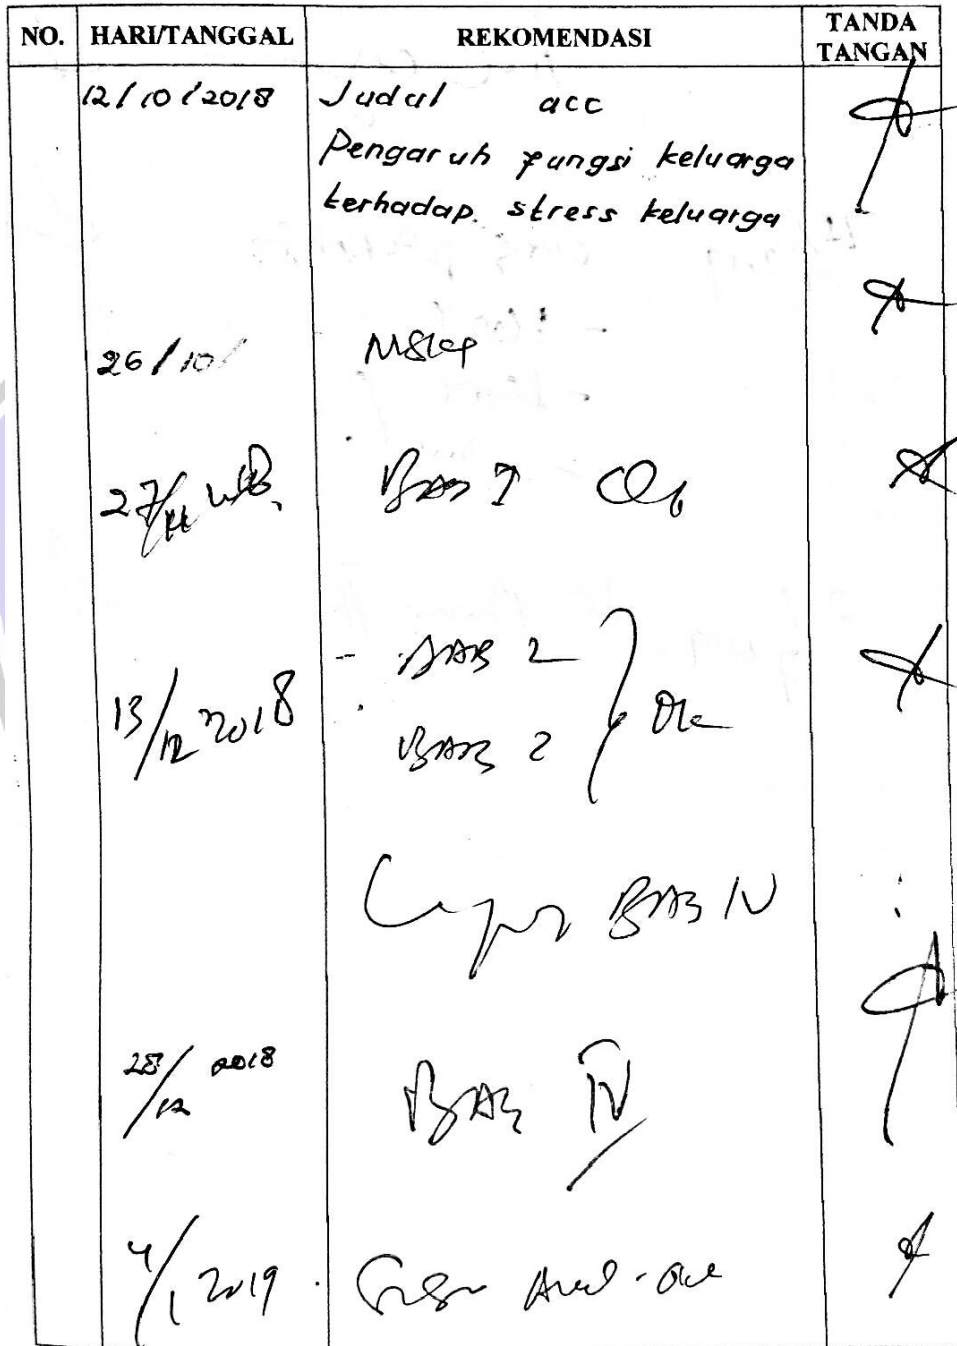 NO. HARI/TANGGAL REKOMENDASI TANDA TANGAN
12/10/2018 Judul acc
Pengaruh fungsi keluarga
terhadap. stress keluarga
26/10/
27/11 BAB I
- BAB 2
13/12 2018 Ok
BAB 2
BAB IV
28/12 2018 BAB IV
4/1 2019